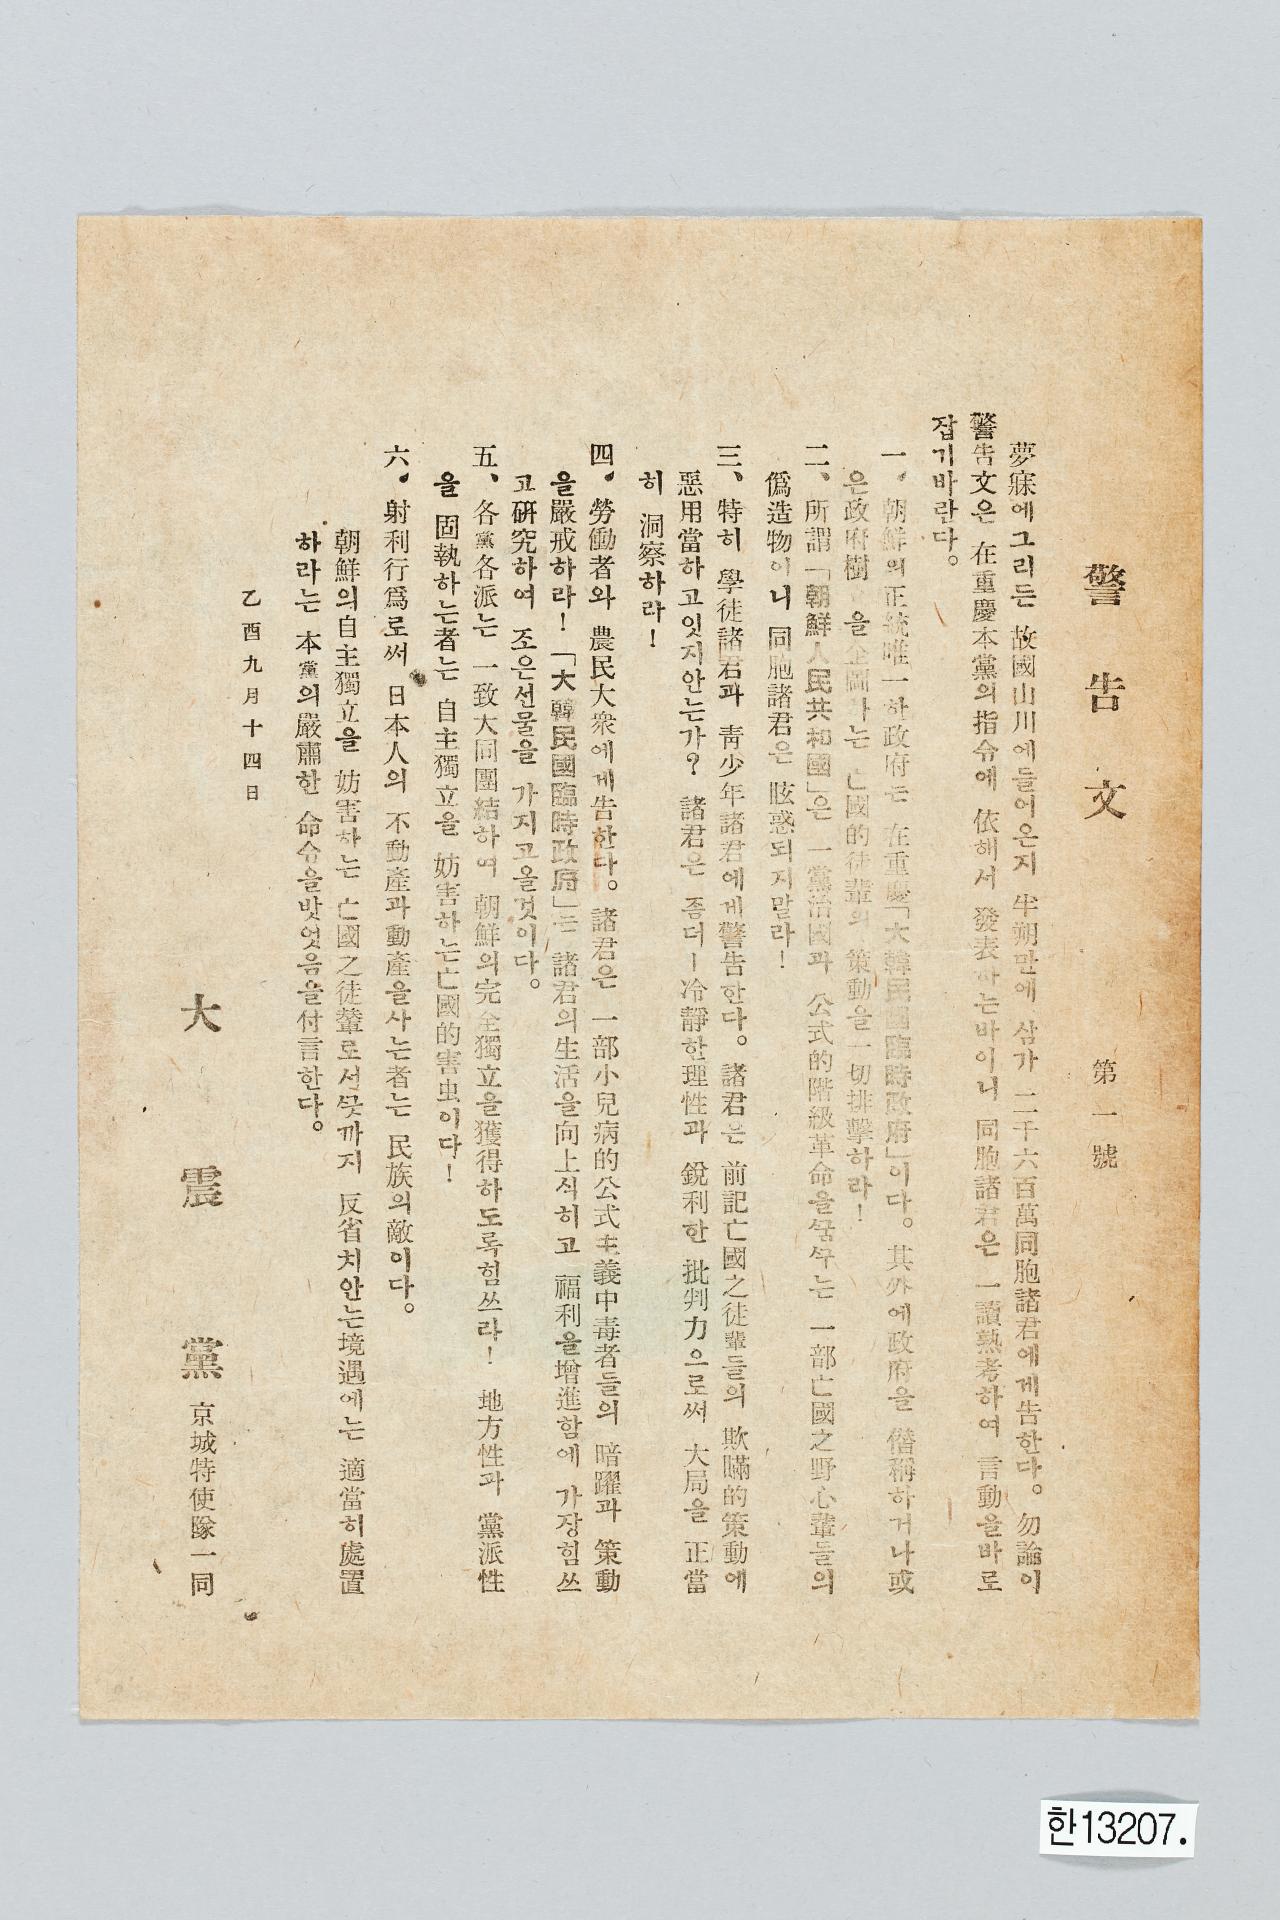 警告文 第一號
夢寐에그리든 故國山川에들어온지 半朔만에 삼가 二千六百萬同胞諸君에게告한다。勿論이
警告文은 在重慶本黨의指令에 依해서 發表하는바이니 同胞諸君은 一讀熟考하여 言動을바로
잡기바란다。
一、朝鮮의正統唯一한政府는 在重慶「大韓民國臨時政府」이다。其外에政府을 僭稱하거나或
은政府樹 을企圖하는 亡國的徒輩의 策動을一切排擊하라!
二、所謂「朝鮮人民共和國」은 一黨治國과 公式的階級革命을꿈꾸는 一部亡國之野心輩들의
僞造物이니 同胞諸君은 眩惑되지말라!
三、特히 學徒諸君과 靑少年諸君에게警告한다。諸君은 前記亡國之徒輩들의 欺瞞的策動에
惡用當하고잇지안는가? 諸君은 좀더ー冷靜한理性과 銳利한 批判力으로써 大局을 正當
히 洞察하라!
四、勞働者와 農民大衆에게告한다。諸君은 一部小兒病的公式主義中毒者들의 暗躍과 策動
을嚴戒하라!「大韓民國臨時政府」는 諸君의生活을向上식히고 福利을增進함에 가장힘쓰
고硏究하여 조은선물을 가지고올것이다。
五、各黨各派는 一致大同團結하여 朝鮮의完全獨立을獲得하도록힘쓰라! 地方性과 黨派性
을 固執하는者는 自主獨立을 妨害하는亡國的害虫이다!
六、射利行爲로써 日本人의 不動產과動產을사는者는 民族의敵이다。
朝鮮의自主獨立을 妨害하는 亡國之徒輩로서끗까지 反省치안는境遇에는 適當히處置
하라는 本黨의嚴肅한 命令을밧엇음을付言한다。
乙酉九月十四日
大震黨 京城特使隊一同
한13207.